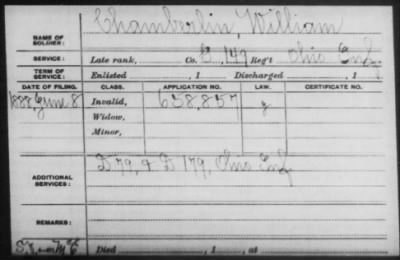 NAME OF SOLDIER: Chamberlin, William
SERVICE: Late rank, Co. E, 147 Reg't Ohio Inf.
TERM OF SERVICE: Enlisted , 1 Discharged , 1
DATE OF FILING. CLASS. APPLICATION NO. LAW. CERTIFICATE NO.
1888, June 8 Invalid, 658,857 g
Widow,
Minor,
ADDITIONAL SERVICES: D 79, & D 179, Ohio Inf
REMARKS:
Died , 1 , at